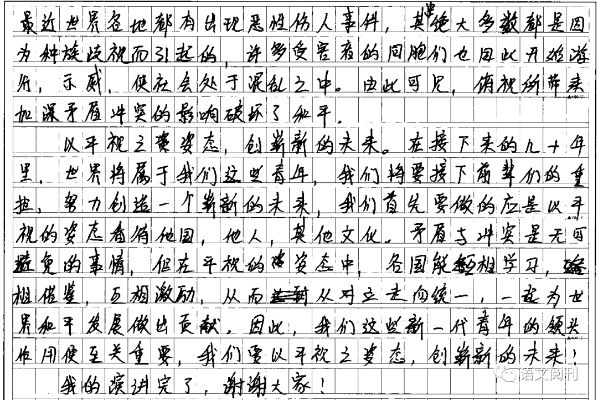 最近世界各地都有出现恶性伤人事件，其中绝大多数都是因
为种族歧视而引起的，许多受害者的同胞们也因此开始游
行，示威，使社会处于混乱之中。由此可见，俯视所带来
加深矛盾冲突的影响破坏了和平。
以平视之姿态，创崭新的未来。在接下来的几十年
里，世界将属于我们这些青年，我们将要接下前辈们的重
担，努力创造一个崭新的未来，我们首先要做的应是以平
视的姿态看待他国，他人，其他文化。矛盾与冲突是无可
避免的事情，但在平视的姿态中，各国能相学习，
相借鉴，互相激励，从而从对立走向统一，一起为世
界和平发展做出贡献。因此，我们这些新一代青年的领头
作用便至关重要，我们要以平视之姿态，创崭新的未来！
我的演讲完了，谢谢大家！
语文周刊